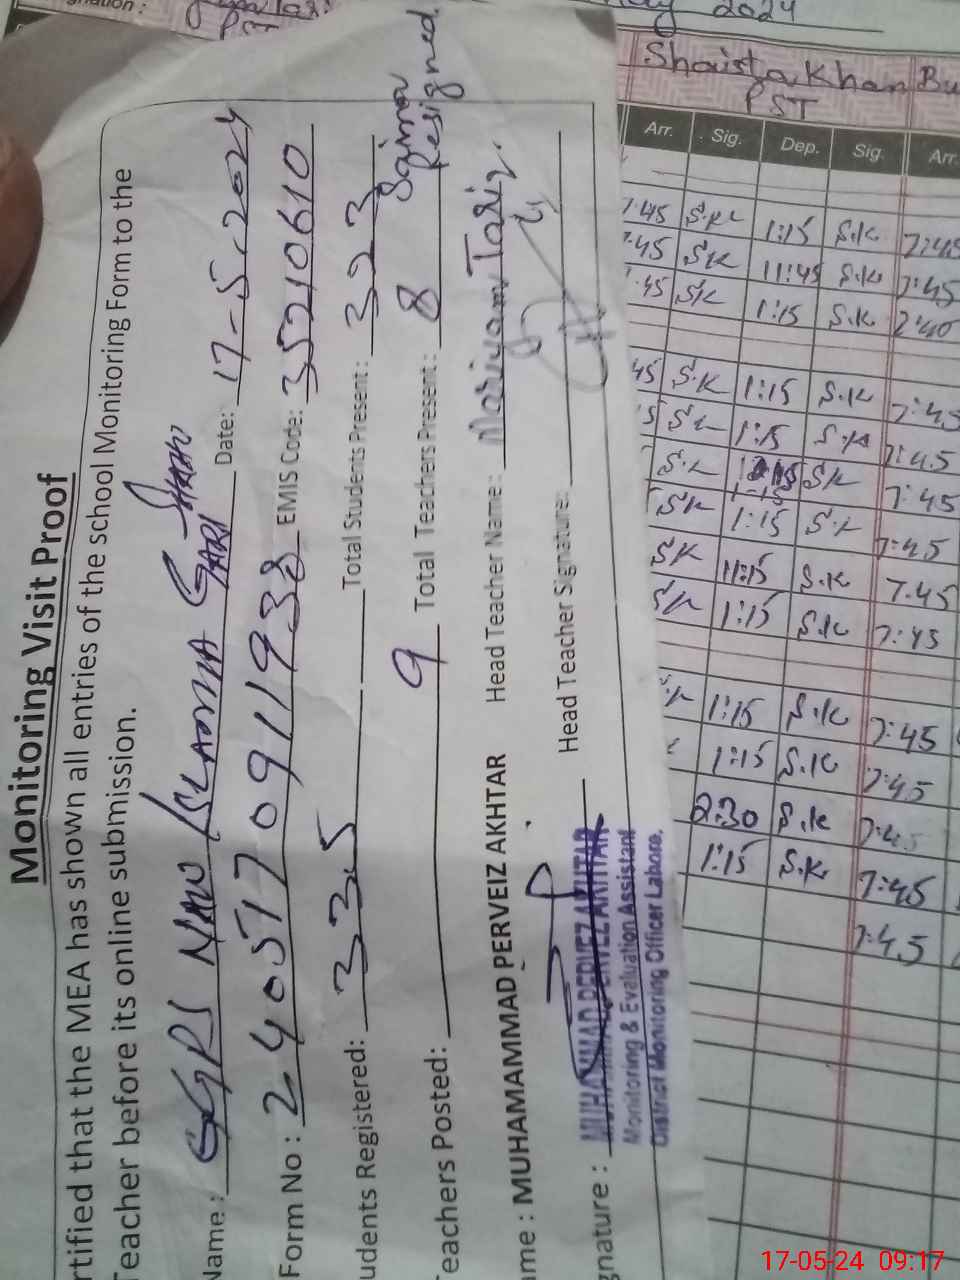 Monitoring Visit Proof
rtified that the MEA has shown all entries of the school Monitoring Form to the
Teacher before its online submission.
Name : GGPS NAW ISLAMIA GARI SHAHU Date: 17-5-2024
Form No : 2405170911938 EMIS Code: 35210610
udents Registered: 335 Total Students Present: 323
Teachers Posted: 9 Total Teachers Present: 8 Saima Resigned
ame : MUHAMAMMAD PERVEIZ AKHTAR Head Teacher Name: Mariyam Tariq
gnature : Head Teacher Signature:
MUHAMMAD PERVEZ AKHTAR
Monitoring & Evaluation Assistant
District Monitoring Officer Lahore.
nation :
PST
2024
Shaista Khan Bu
PST
Arr. Sig. Dep. Sig. Arr.
7:45 S.K 1:15 S.K 7:45
7:45 SK 11:45 S.K 7:45
:45 SK 1:15 S.K 2:40
45 S.K 1:15 S.K 7:45
5 SK 1:15 S.K 7:45
S.K 1:15 SK 7:45
SK 1:15 S.K 7:45
SK 11:15 S.K 7.45
SK 1:15 S.K 7:45
1:15 S.K 7:45
1:15 S.K 7:45
2:30 S.K 7:45
1:15 S.K 7:45
7:45
17-05-24 09:17